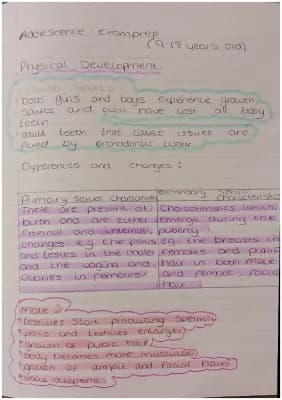 Adolescence: Exam prep
(9-18 years old)
Physical Development
Growth Spurts:
• both girls and boys experience growth
spurts and will have lost all baby
teeth
• adult teeth that cause issues are
fixed by orthodontic work
Differences and changes:
Primary sexual characteristics
These are present at
birth and are either
internal and
changes e.g the penis
and testes in the males
and the vagina and
ovaries in females.
Secondary sexual
characteristics
Characteristics which
emerge during the
puberty
e.g. the breasts in
females and pubic
hair in both male
and female, facial
hair.
male:
• testicles start producing sperm
• penis and testicles enlarge
• growth of pubic hair
• body becomes more muscular
• growth of armpit and facial hair
• voice deepens